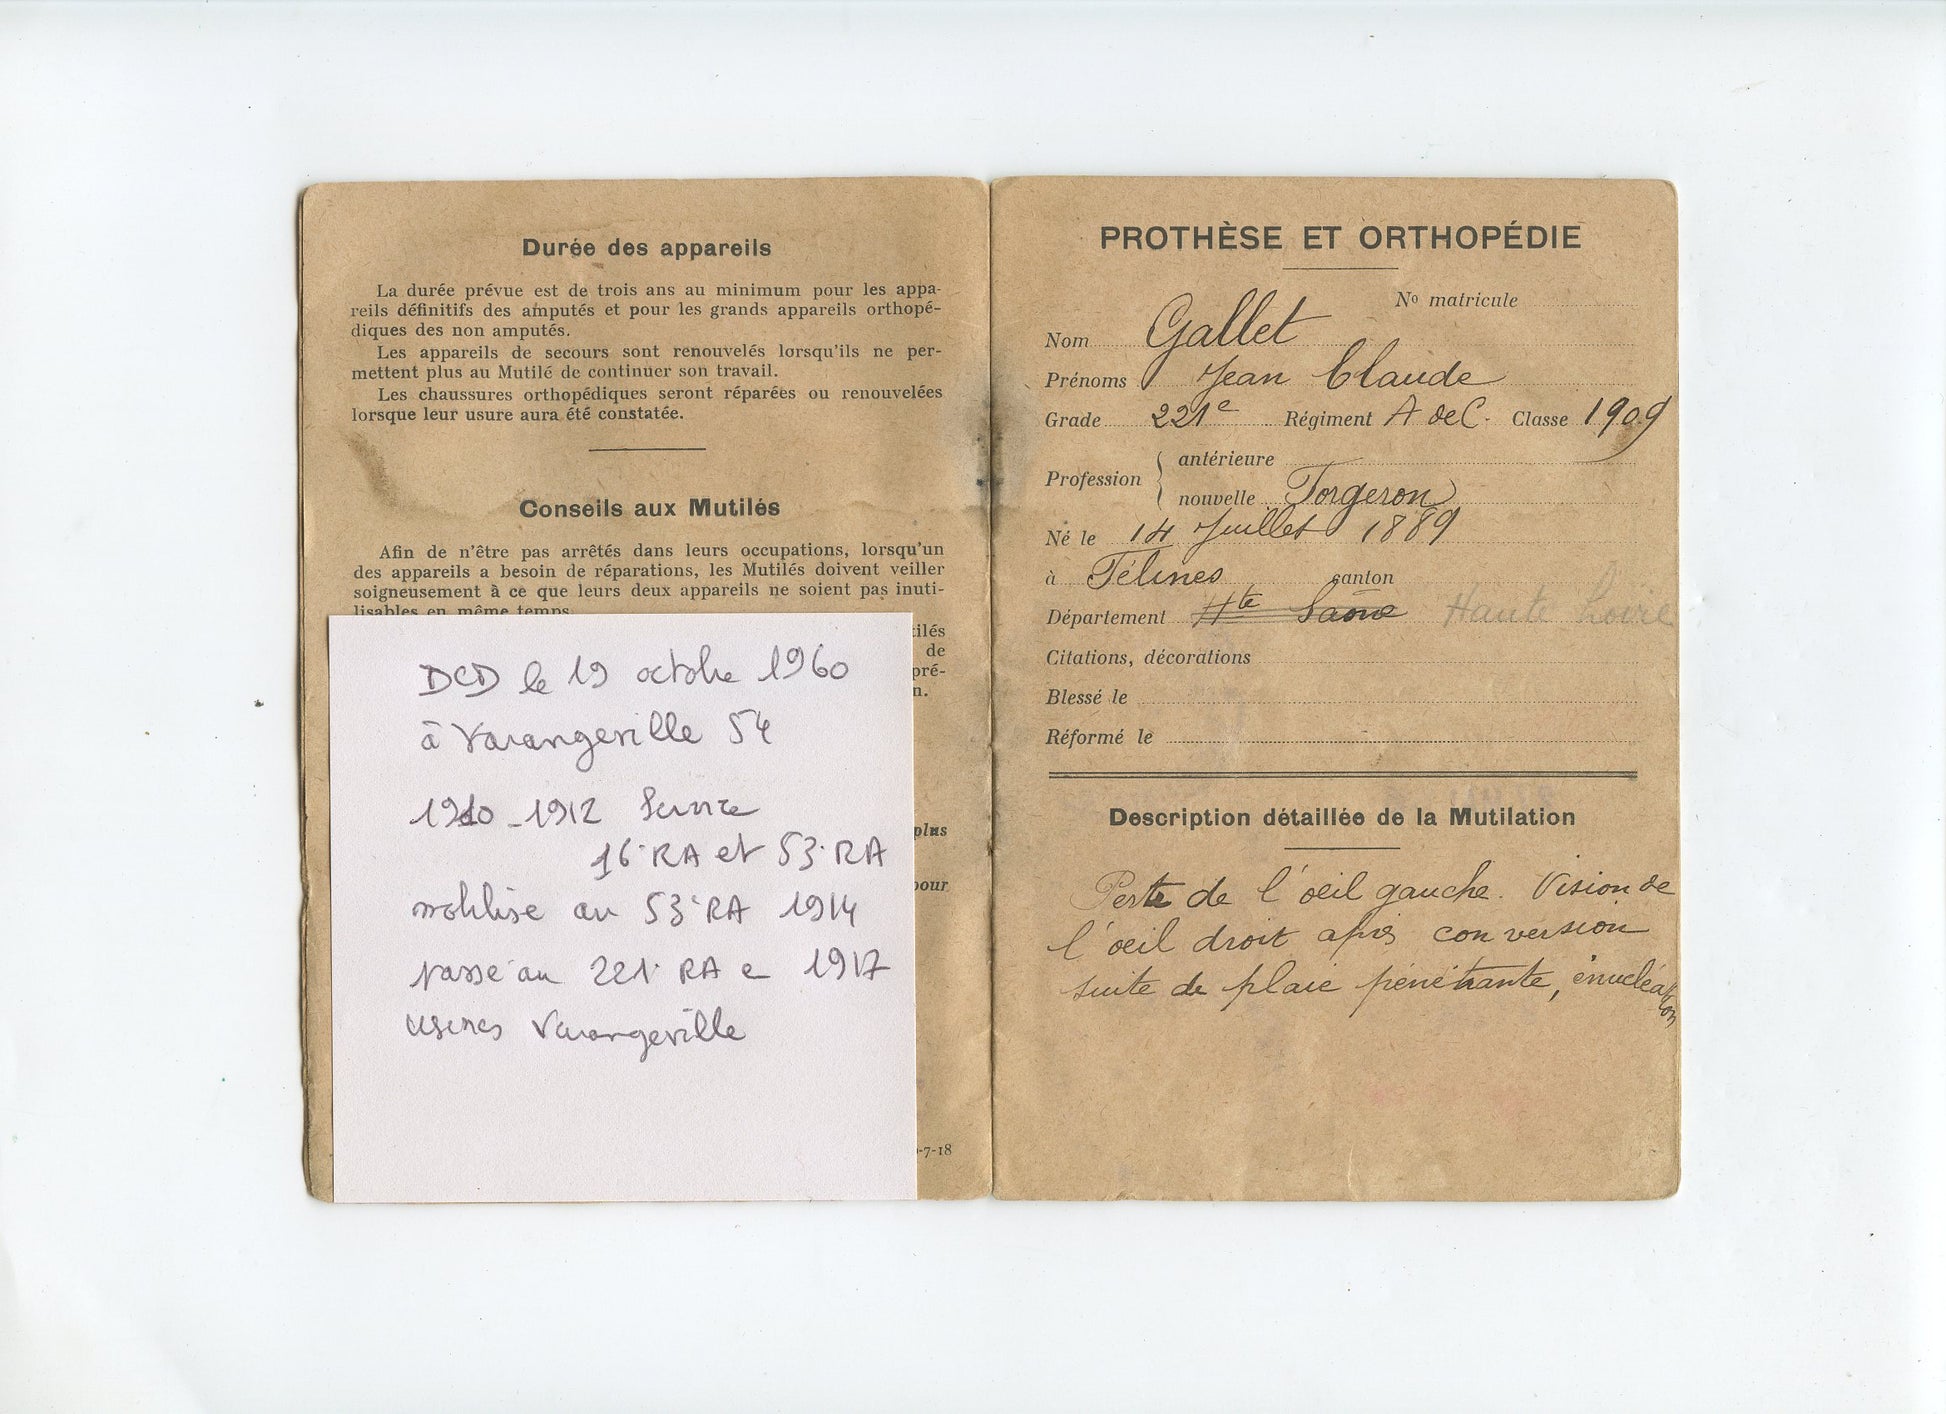 Durée des appareils
La durée prévue est de trois ans au minimum pour les appa-
reils définitifs des amputés et pour les grands appareils orthopé-
diques des non amputés.
Les appareils de secours sont renouvelés lorsqu'ils ne per-
mettent plus au Mutilé de continuer son travail.
Les chaussures orthopédiques seront réparées ou renouvelées
lorsque leur usure aura été constatée.
Conseils aux Mutilés
Afin de n'être pas arrêtés dans leurs occupations, lorsqu'un
des appareils a besoin de réparations, les Mutilés doivent veiller
soigneusement à ce que leurs deux appareils ne soient pas inuti-
lisables en même temps.
tilés
de
pré-
n.
plus
pour
-7-18
DCD le 19 octobre 1960
à Varangeville 54
1910-1912 Service
16e RA et 53e RA
mobilisé au 53e RA 1914
passé au 221e RA e 1917
usines Varangeville
PROTHÈSE ET ORTHOPÉDIE
No matricule
Nom Gallet
Prénoms Jean Claude
Grade 221e Régiment A de C. Classe 1909
Profession antérieure
nouvelle Forgeron
Né le 14 Juillet 1889
à Félines canton
Département Hte Saône Haute Loire
Citations, décorations
Blessé le
Réformé le
Description détaillée de la Mutilation
Perte de l'oeil gauche. Vision de
l'oeil droit après conversion
suite de plaie pénétrante, énucléation